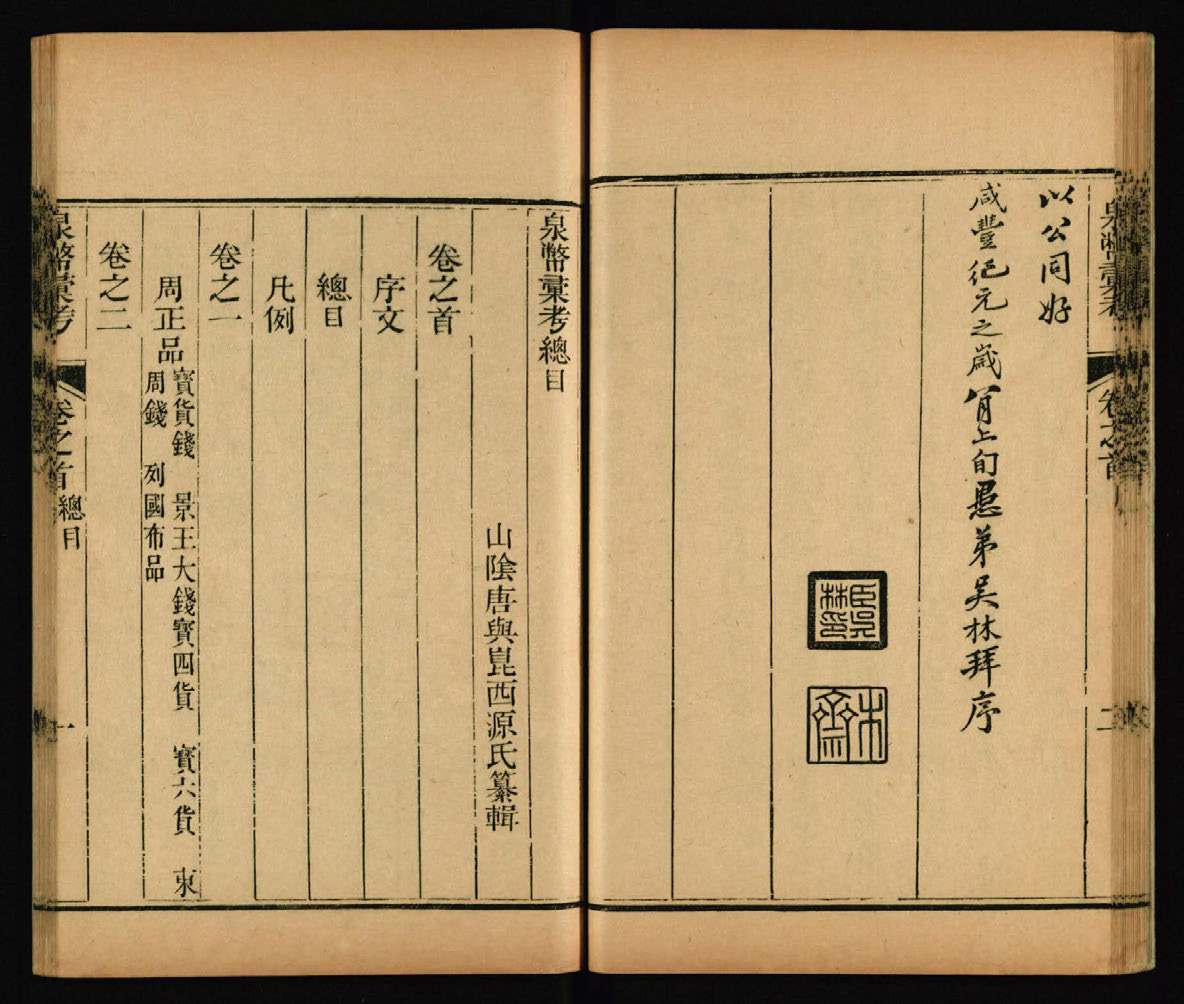 泉幣彙考 卷之首 序 二
以公同好
咸豐紀元之歲八月上旬愚弟吳林拜序
臣吳林印
木齋
泉幣彙考總目
山陰唐與崑西源氏纂輯
卷之首
序文
總目
凡例
卷之一
周正品 寶貨錢 景王大錢寶四貨 寶六貨 東
周錢 列國布品
卷之二
泉幣彙考 卷之首 總目 一